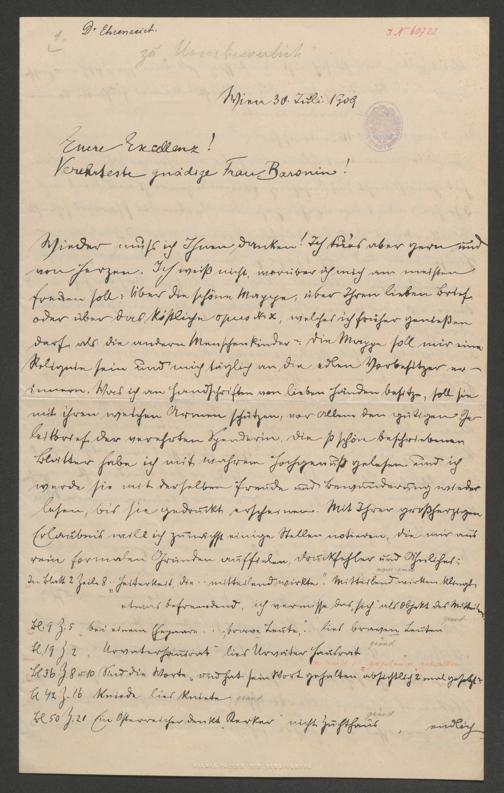 Dr Ehrenreich.
I N 60722
zu Unverbesserlich
Wien 30. Juli 1909
Euere Excellenz!
Verehrteste gnädige Frau Baronin!
Wieder muß ich Ihnen danken! Ich tu's aber gern und
von Herzen. Ich weiß nicht, worüber ich mich am meisten
freuen soll: Über die schöne Mappe, über Ihren lieben Brief
oder über das köstliche opus, welches ich früher genießen
darf als die andern Menschenkinder. Die Mappe soll mir eine
Reliquie sein und mich täglich an die edlen Vorbesitzer er-
innern. Was ich an Handschriften von lieben Händen besitze, soll sie
mit ihren weichen Armen schützen, vor allem den gütigen Ge-
leitbrief der verehrten Spenderin. Die so schön beschriebenen
Blätter habe ich mit wahrem Hochgenuß gelesen und ich
werde sie mit derselben Freude und Bewunderung wieder
lesen, bis sie gedruckt erscheinen. Mit Ihrer großherzigen
Erlaubnis will ich zunächst einige Stellen notieren, die mir aus
rein formalen Gründen auffielen, Druckfehler und Ähnliches:
In Blatt 2 Zeile 8 "Heiterkeit, die mitteilend wirkte" Mitteilend wirken klingt
etwas befremdend, ich vermisse das "sich" als Objekt des Mitteilens
Bl. 9 Z. 5 bei einem "brave Leute": lies braven Leuten
Bl. 19 Z 2 "Urvaterhausrat" lies Urväter Hausrat
Bl. 36 Z. 8 u 10 Sind die Worte "und hat sein Wort gehalten" absichtlich 2 mal gesetzt?
Bl. 42 Z. 16 Kniede lies Kniete
Bl. 50 Z. 21 Ein Österreicher denkt "Kerker" nicht Zuchthaus, endlich